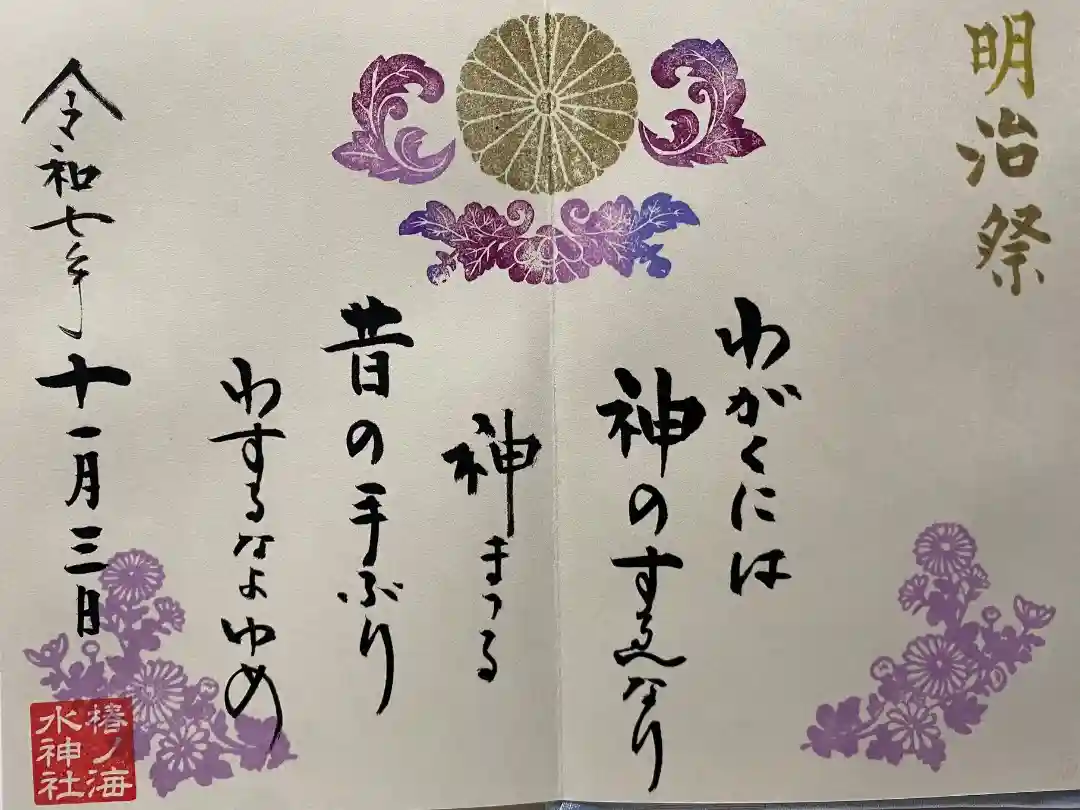 明治祭
わがくには
神のすゑなり
神まつる
昔の手ぶり
わするなよゆめ
令和七年十一月三日
椿ノ海
水神社